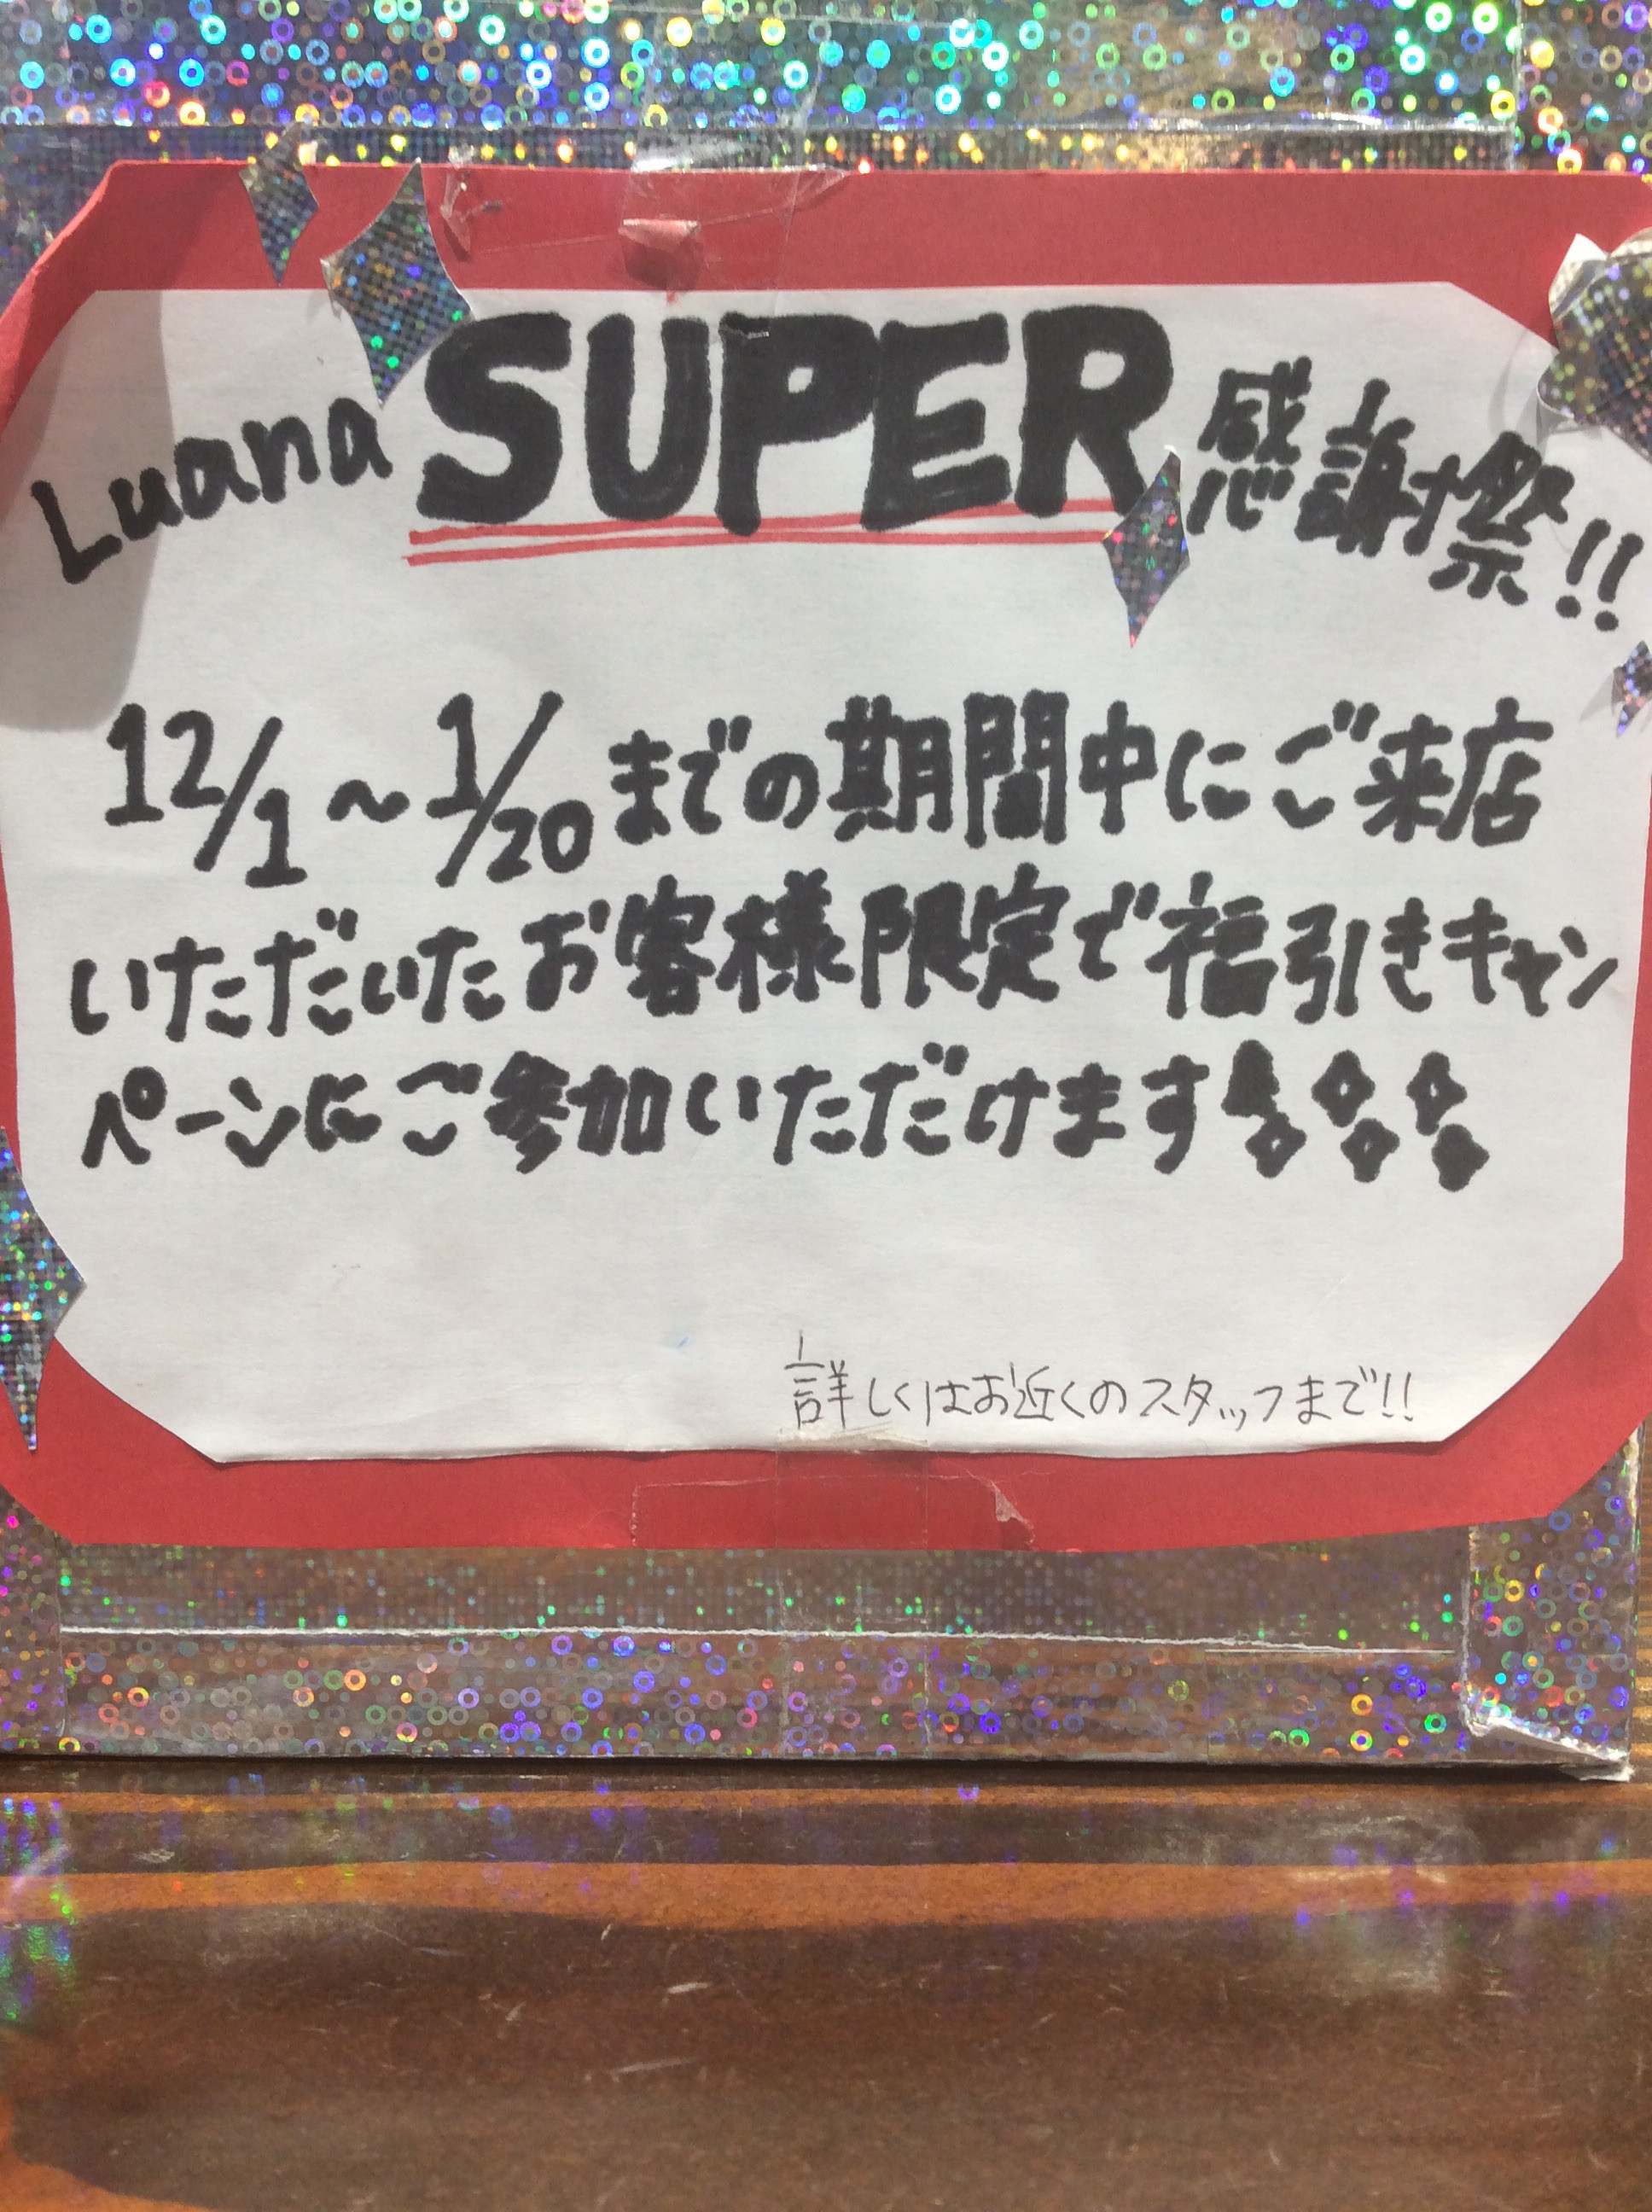 Luana SUPER 感謝祭!!
12/1~1/20までの期間中にご来店
いただいたお客様限定で福引きキャン
ペーンにご参加いただけます!!!
詳しくはお近くのスタッフまで!!